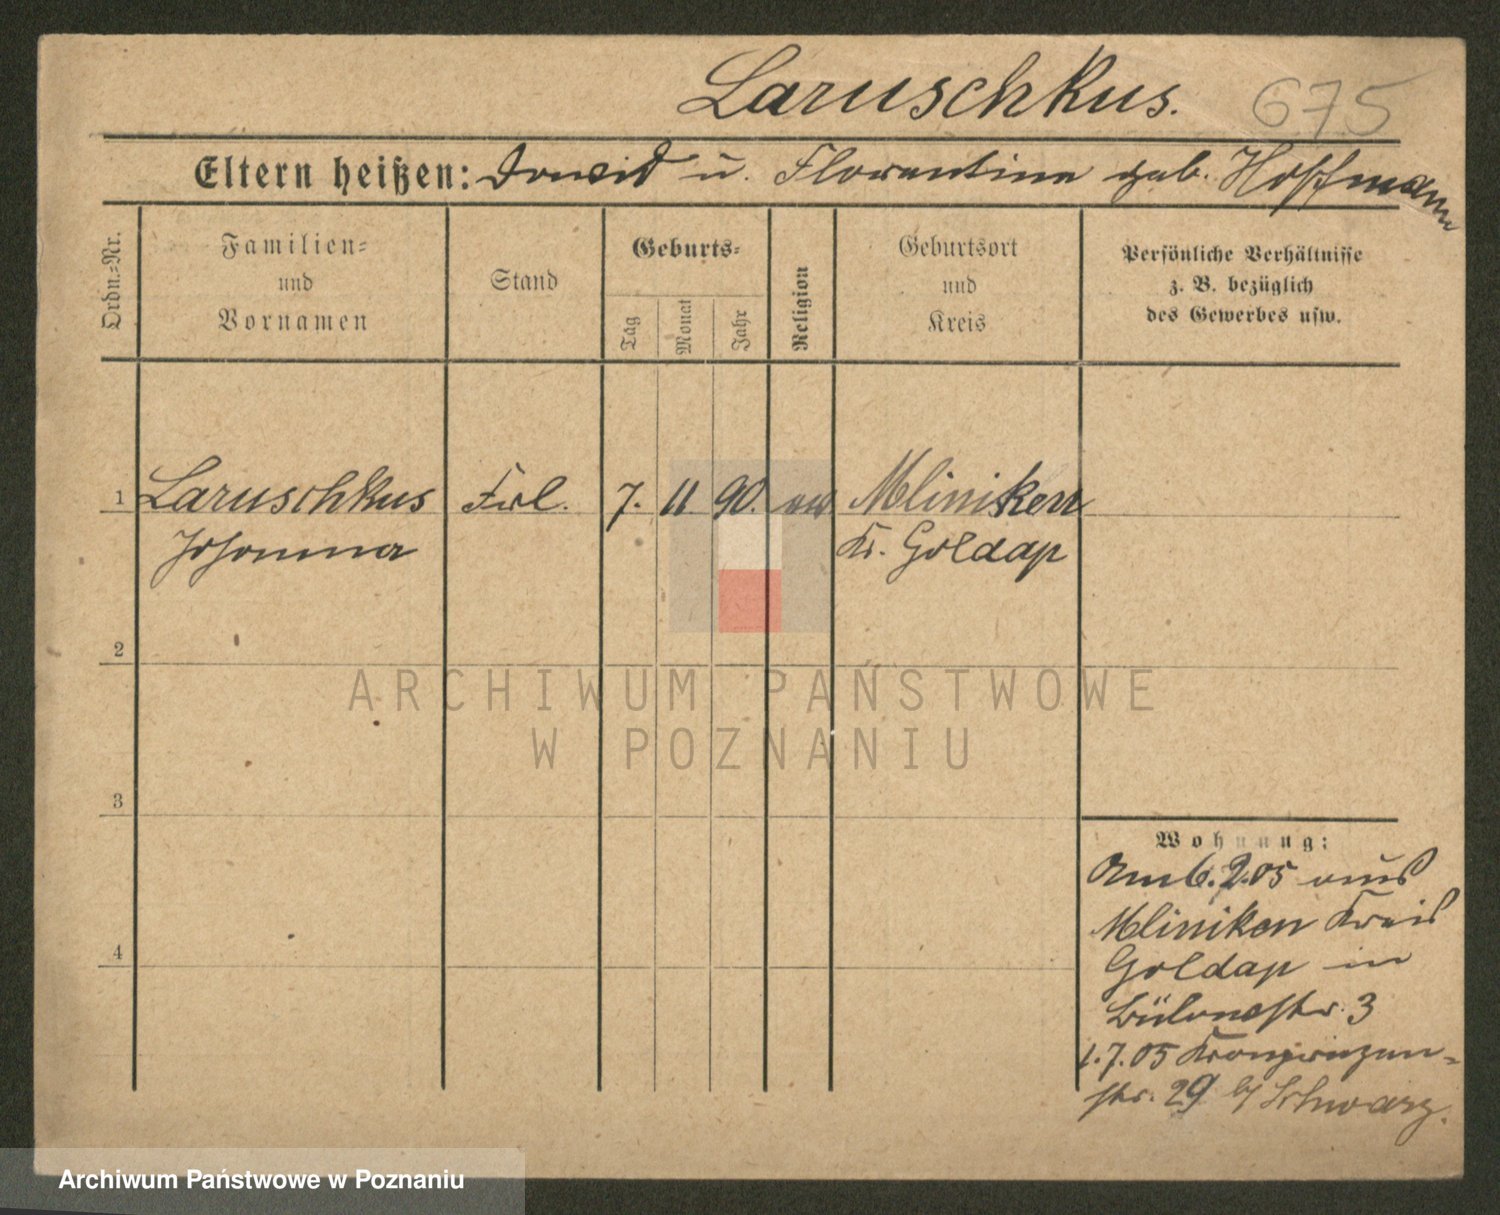 Laruschkus. 675
Eltern heißen: David u. Florentine geb. Hoffmann
Ordn.=Nr.
Familien=
und
Vornamen
Stand
Geburts=
Tag
Monat
Jahr
Religion
Geburtsort
und
Kreis
Persönliche Verhältnisse
z. B. bezüglich
des Gewerbes usw.
1 Laruschkus Frl. 7. 11 90. ev Mliniken
Johanna Kr. Goldap
2
ARCHIWUM PAŃSTWOWE
W POZNANIU
3
4
Wohnung:
Am 6.2.05 aus
Mliniken Kreis
Goldap in
Bülowstr. 3
1.7.05 Kronprinzen=
str. 29 b/ Schwarz.
Archiwum Państwowe w Poznaniu